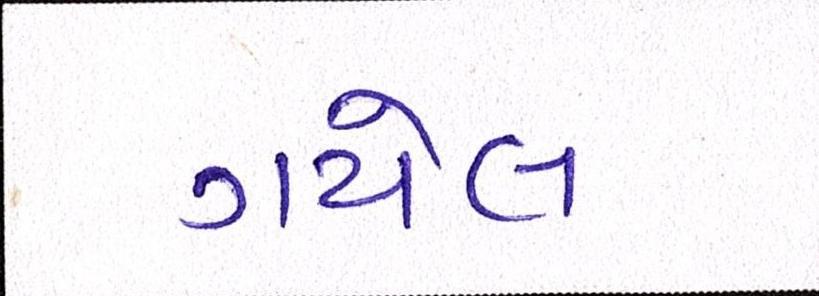 ગયેલ